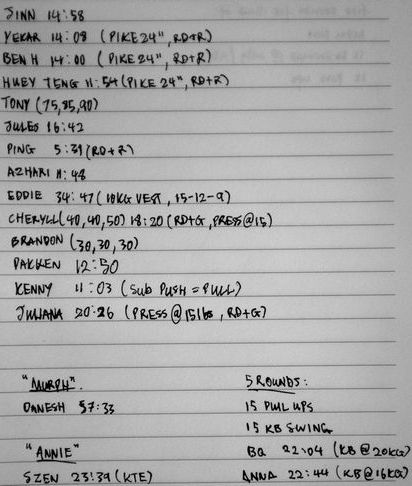 JINN 14:58
YEKAR 14:08 (PIKE 24", RD+R)
BEN H 14:00 (PIKE 24", RD+R)
HUEY TENG 11:54 (PIKE 24", RD+R)
TONY (75,85,90)
JULES 16:42
PING 5:31 (RD+R)
AZHARI 11:48
EDDIE 34:47 (10KG VEST, 15-12-9)
CHERYLL (40,40,50) 18:20 (RD+G, PRESS@15)
BRANDON (30,30,30)
DAKKEN 12:50
KENNY 11:03 (SUB PUSH = PULL)
JULIANA 20:26 (PRESS @ 15lbs, RD+G)
"MURPH".
DANESH 57:33
"ANNIE"
SZEN 23:39 (KTE)
5 ROUNDS:
15 PULL UPS
15 KB SWING
BQ 22:04 (KB @ 20KG)
ANNA 22:44 (KB @ 16KG)